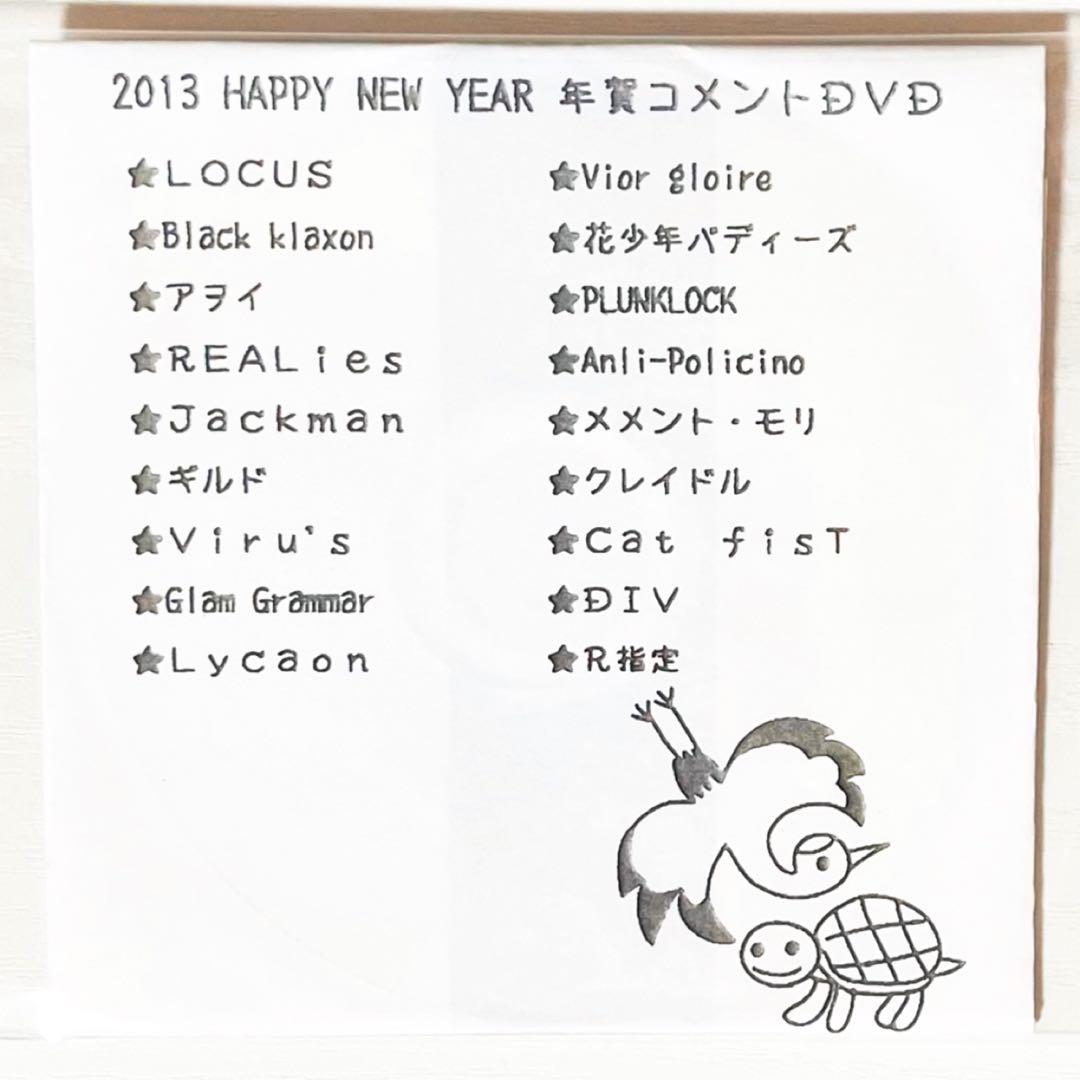 2013 HAPPY NEW YEAR 年賀コメントDVD
★LOCUS
★Black klaxon
★アヲイ
★REALies
★Jackman
★ギルド
★Viru's
★Glam Grammar
★Lycaon
★Vior gloire
★花少年バディーズ
★PLUNKLOCK
★Anli-Policino
★メメント・モリ
★クレイドル
★Cat fisT
★DIV
★R指定